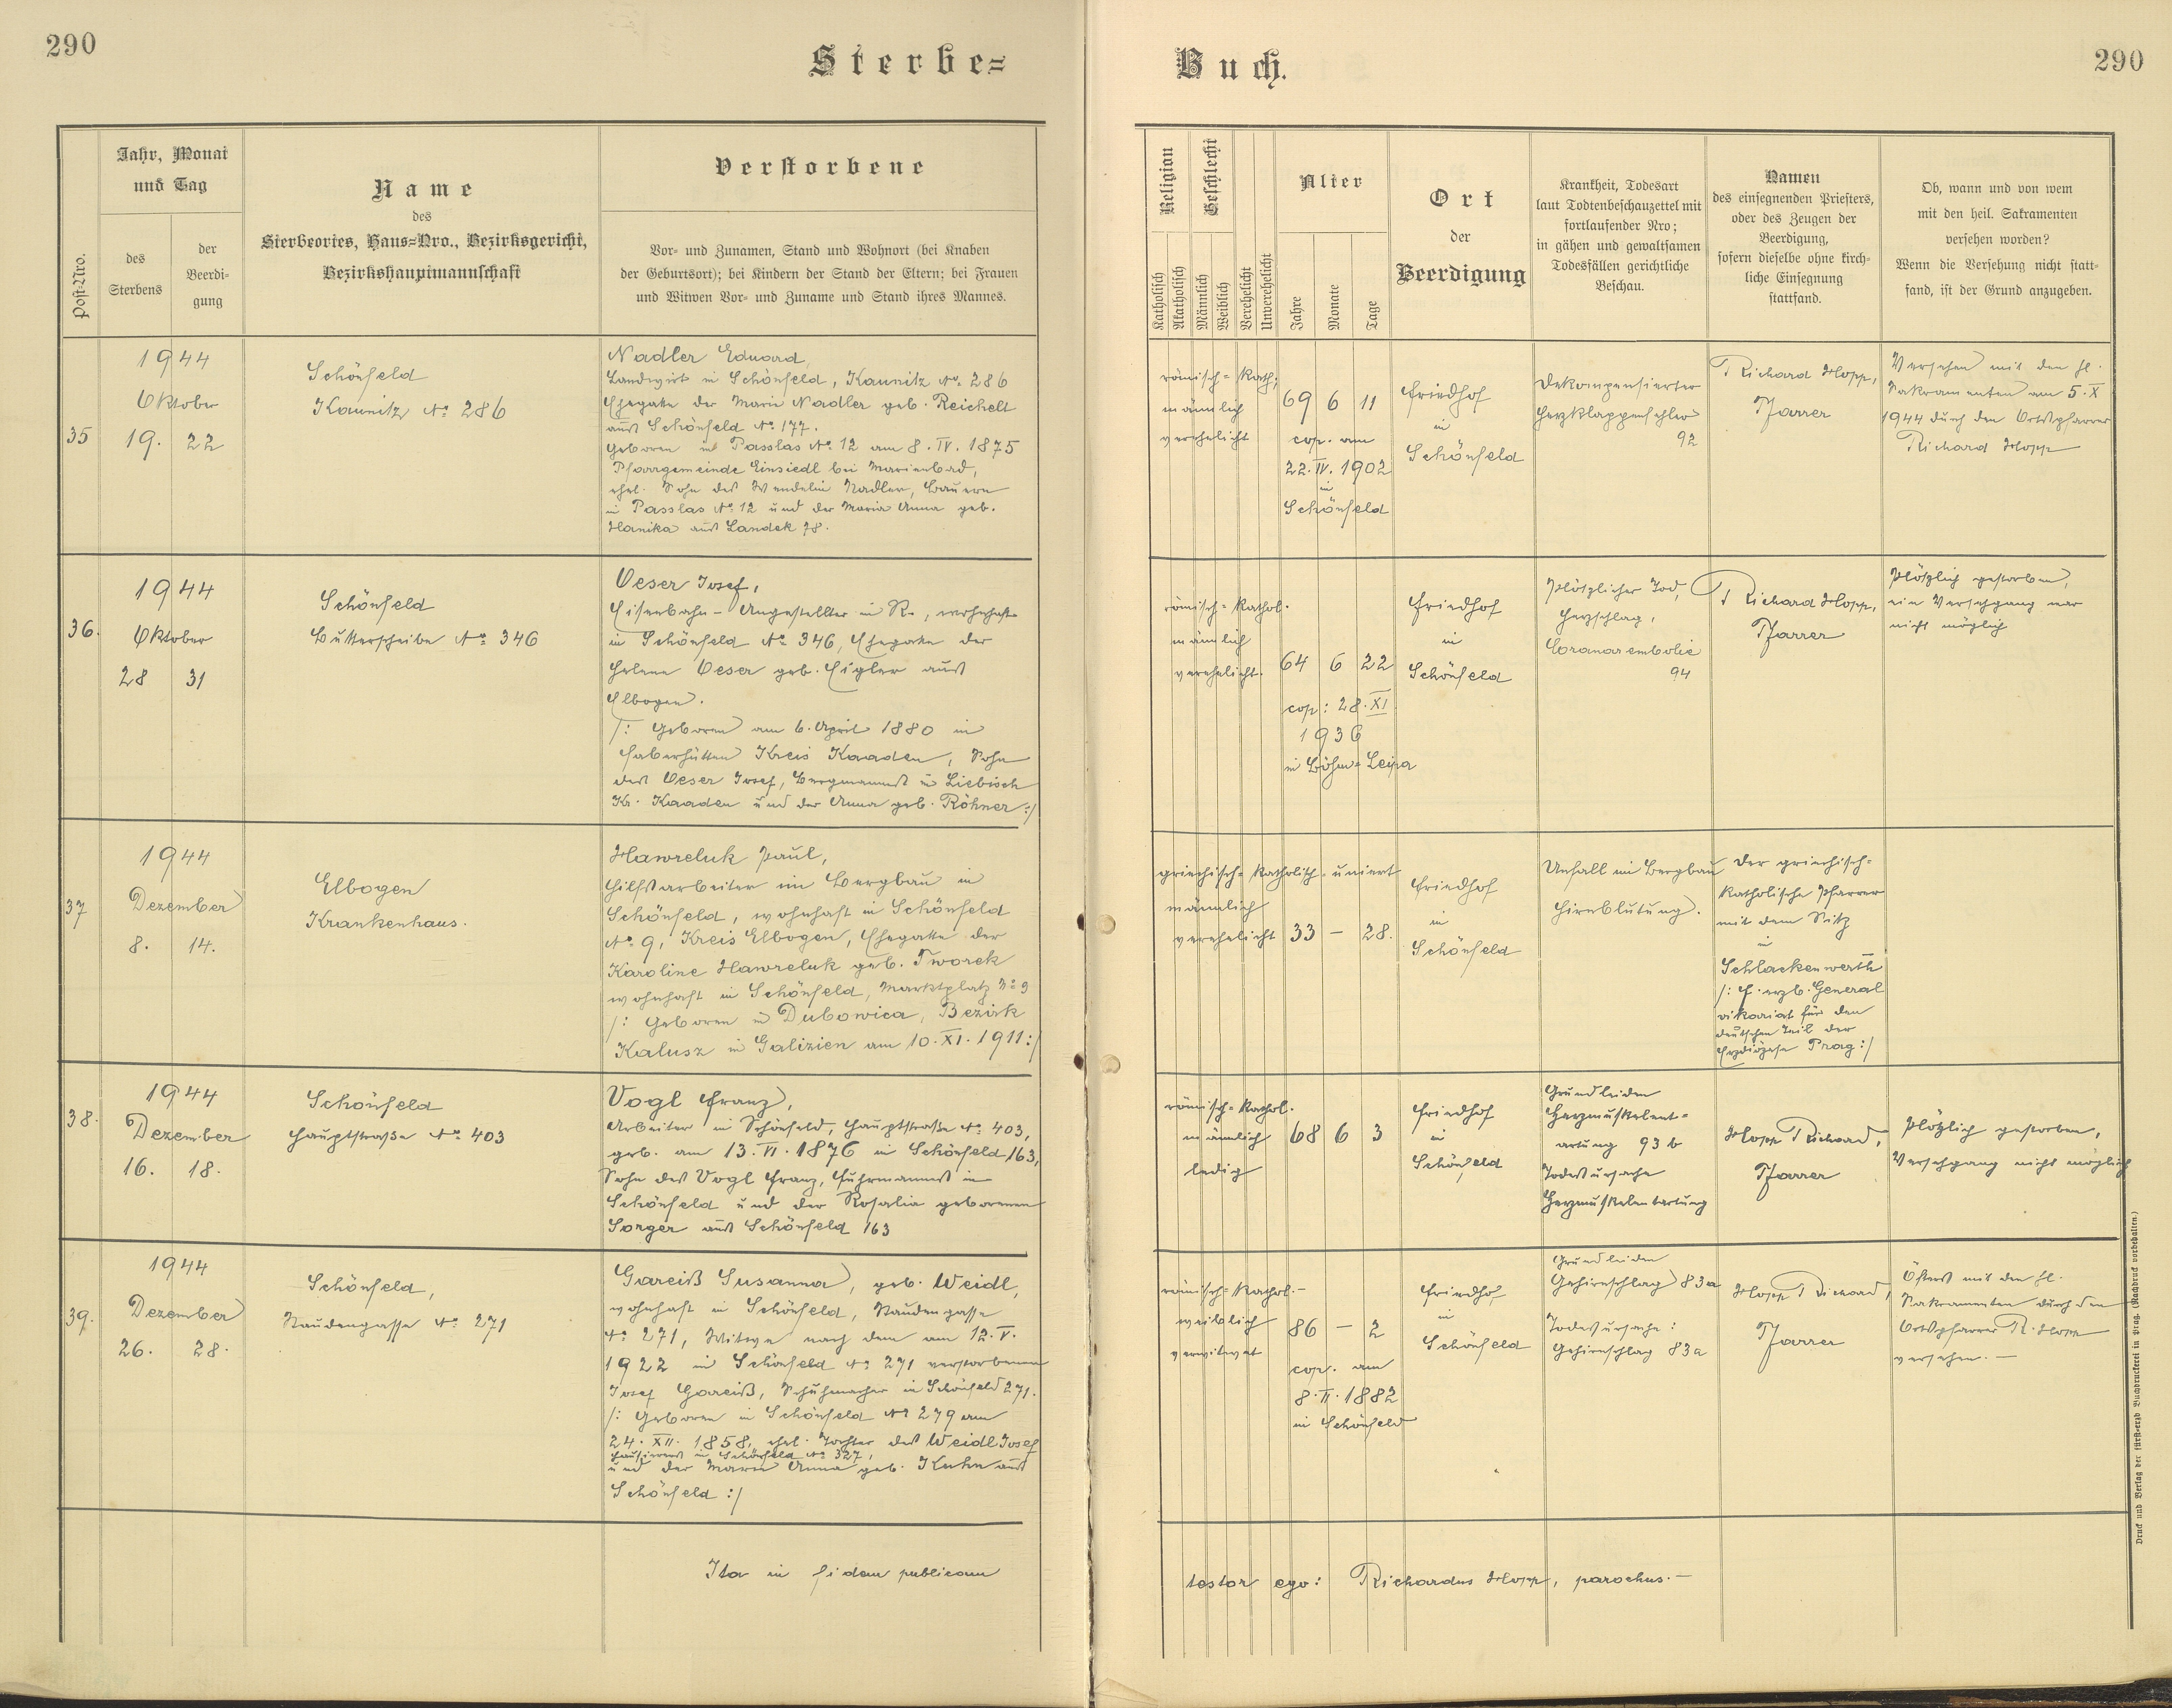 290
Sterbe=
Buch.
290
Post-Nro.
Jahr, Monat
und Tag
des
Sterbens
der
Beerdi-
gung
Name
des
Sterbeortes, Haus=Nro., Bezirksgericht,
Bezirkshauptmannschaft
Verstorbene
Vor- und Zunamen, Stand und Wohnort (bei Knaben
der Geburtsort); bei Kindern der Stand der Eltern; bei Frauen
und Witwen Vor- und Zuname und Stand ihres Mannes.
Religion
Katholisch
Akatholisch
Geschlecht
Männlich
Weiblich
Verehelicht
Unverehelicht
Alter
Jahre
Monate
Tage
Ort
der
Beerdigung
Krankheit, Todesart
laut Todtenbeschauzettel mit
fortlaufender Nro;
in gähen und gewaltsamen
Todesfällen gerichtliche
Beschau.
Namen
des einsegnenden Priesters,
oder des Zeugen der
Beerdigung,
sofern dieselbe ohne kirch-
liche Einsegnung
stattfand.
Ob, wann und von wem
mit den heil. Sakramenten
versehen worden?
Wenn die Versehung nicht statt-
fand, ist der Grund anzugeben.
35
1944
Oktober
19. 22
Schönfeld
Kaunitz No. 286
Nadler Eduard,
Landwirt in Schönfeld, Kaunitz No. 286
Ehegatte der Marie Nadler geb. Reichelt
aus Schönfeld No. 177.
Geboren in Passlas No. 12 am 8. IV. 1875
Pfarrgemeinde Einsiedl bei Marienbad,
ehel. Sohn des Wendelin Nadler, Bauern
in Passlas No. 12 und der Maria Anna geb.
Hanika aus Landek 78.
römisch=kath.
männlich
verehelicht
69 6 11
cop. am
22. IV. 1902
in
Schönfeld
Friedhof
in
Schönfeld
Dekompensierter
Herzklappenfehler
92
Richard Hopp,
Pfarrer
Versehen mit den hl.
Sakramenten am 5. X
1944 durch den Ortspfarrer
Richard Hopp
36.
1944
Oktober
28 31
Schönfeld
Butterscheibe No. 346
Oeser Josef,
Eisenbahn-Angestellter in R., wohnhaft
in Schönfeld No. 346, Ehegatte der
Helene Oeser geb. Eigler aus
Elbogen.
/: Geboren am 6. April 1880 in
Faberhütten Kreis Kaaden, Sohn
des Oeser Josef, Bergmannes in Liebisch
Kr. Kaaden und der Anna geb. Röhner :/
römisch=kathol.
männlich
verehelicht.
64 6 22
cop: 28. XI
1936
in Böhm=Leipa
Friedhof
in
Schönfeld
Plötzlicher Tod,
Herzschlag,
Coronarembolie
94
Richard Hopp,
Pfarrer
Plötzlich gestorben,
ein Versehgang war
nicht möglich
37
1944
Dezember
8. 14.
Elbogen
Krankenhaus.
Hawreluk Paul,
Hilfsarbeiter im Bergbau in
Schönfeld, wohnhaft in Schönfeld
No. 9, Kreis Elbogen, Ehegatte der
Karoline Hawreluk geb. Tworek
wohnhaft in Schönfeld, Marktplatz No 9
/: Geboren in Dubowica, Bezirk
Kalusz in Galizien am 10. XI. 1911 :/
griechisch=katholisch=uniert
männlich
verehelicht
33 – 28.
Friedhof
in
Schönfeld
Unfall im Bergbau
Hirnblutung.
Der griechisch=
katholische Pfarrer
mit dem Sitz
in
Schlackenwerth
/: f. erzb. General
vikariat für den
deutschen Teil der
Erzdiözese Prag :/
38.
1944
Dezember
16. 18.
Schönfeld
Hauptstraße No. 403
Vogl Franz,
Arbeiter in Schönfeld, Hauptstraße No. 403,
geb. am 13. VI. 1876 in Schönfeld 163,
Sohn des Vogl Franz, Fuhrmannes in
Schönfeld und der Rosalia geborenen
Sorger aus Schönfeld 163
römisch=kathol.
männlich
ledig
68 6 3
Friedhof
in
Schönfeld
Grundleiden
Herzmuskelent=
artung 93 b
Todesursache
Herzmuskelentartung
Hopp Richard,
Pfarrer
Plötzlich gestorben,
Versehgang nicht möglich
39.
1944
Dezember
26. 28.
Schönfeld,
Staudengasse No. 271
Gareiß Susanna, geb. Weidl,
wohnhaft in Schönfeld, Staudengasse
No. 271, Witwe nach dem am 12. V.
1922 in Schönfeld No. 271 verstorbenen
Josef Gareiß, Schuhmacher in Schönfeld 271.
/: Geboren in Schönfeld No 279 am
24. XII. 1858, ehel. Tochter des Weidl Josef
Hausierers in Schönfeld No. 327,
und der Maria Anna geb. Kuhn aus
Schönfeld :/
römisch=kathol.–
weiblich
verwitwet
86 – 2
cop. am
8. II. 1882
in Schönfeld
Friedhof
in
Schönfeld
Grundleiden
Gehirnschlag 83a
Todesursache:
Gehirnschlag 83a
Hopp Richard,
Pfarrer
Öfters mit den hl.
Sakramenten durch den
Ortspfarrer R. Hopp
versehen. –
Ita in fidem publicam
testor ego: Richardus Hopp, parochus. –
Druck und Verlag der fürst-erzb Buchdruckerei in Prag. (Nachdruck vorbehalten.)